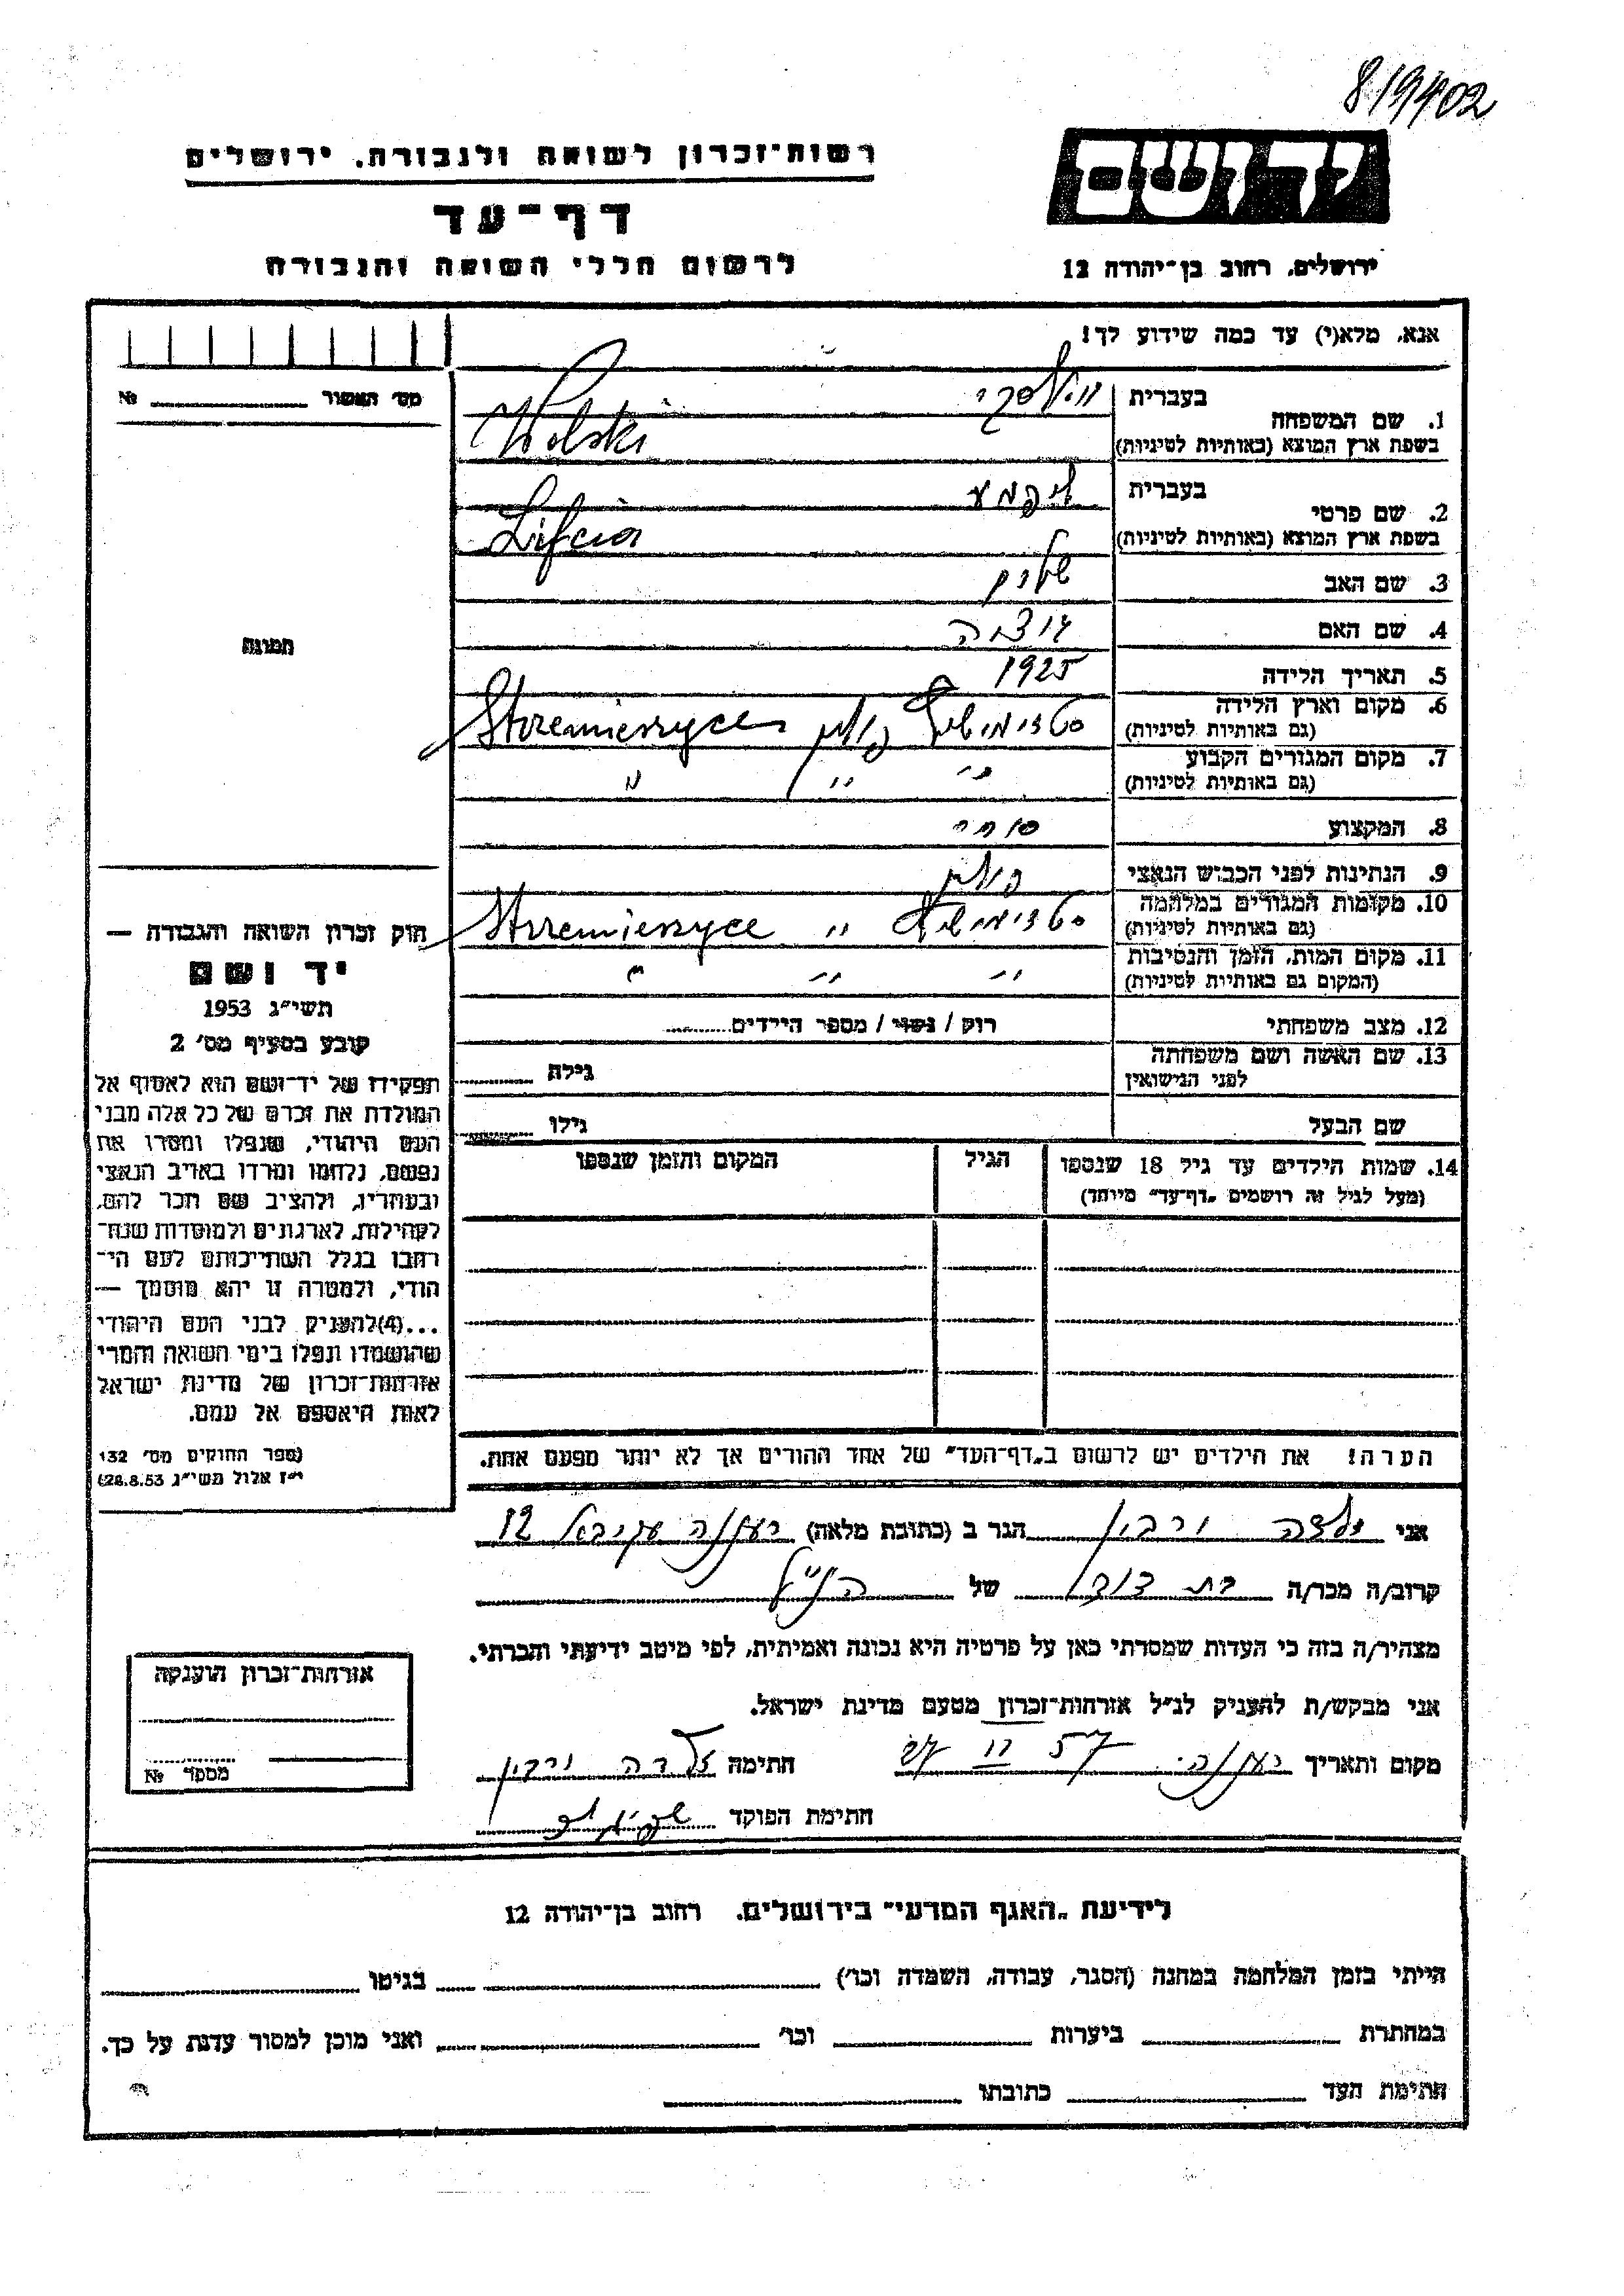 819402
יד ושם
רשות־זכרון לשואה ולגבורה, ירושלים
דף־עד
לרשום חללי השואה והגבורה
ירושלים, רחוב בן־יהודה 12
אנא, מלא(י) עד כמה שידוע לך!
מס׳ האשור № 
תמונה
1. שם המשפחה
בעברית
בשפת ארץ המוצא (באותיות לטיניות) Wolski
2. שם פרטי
בעברית
בשפת ארץ המוצא (באותיות לטיניות)
3. שם האב
4. שם האם
5. תאריך הלידה 1925
6. מקום וארץ הלידה פולין Strzemieszyce
(גם באותיות לטיניות)
7. מקום המגורים הקבוע ״ ״ ״
(גם באותיות לטיניות)
8. המקצוע סוחר
9. הנתינות לפני הכבוש הנאצי פולין
10. מקומות המגורים במלחמה ״ Strzemieszyce
(גם באותיות לטיניות)
11. מקום המות, הזמן והנסיבות ״ ״ ״
(המקום גם באותיות לטיניות)
12. מצב משפחתי רוק / נשוי / מספר הילדים
13. שם האשה ושם משפחתה גילה
לפני הנישואין
שם הבעל גילו
14. שמות הילדים עד גיל 18 שנספו הגיל המקום והזמן שנספו
(מעל לגיל זה רושמים „דף־עד״ מיוחד)
הערה! את הילדים יש לרשום ב„דף־העד״ של אחד ההורים אך לא יותר מפעם אחת.
חוק זכרון השואה והגבורה —
יד ושם
תשי״ג 1953
קובע בסעיף מס׳ 2
תפקידו של יד־ושם הוא לאסוף אל
המולדת את זכרם של כל אלה מבני
העם היהודי, שנפלו ומסרו את
נפשם, נלחמו ומרדו באויב הנאצי
ובעוזריו, ולהציב שם וזכר להם,
לקהילות, לארגונים ולמוסדות שנח־
רבו בגלל השתייכותם לעם הי־
הודי, ולמטרה זו יהא מוסמך —
...(4) להעניק לבני העם היהודי
שהושמדו ונפלו בימי השואה והמרי
אזרחות־זכרון של מדינת ישראל
לאות היאספם אל עמם.
(ספר החוקים מס׳ 132
י״ז אלול תשי״ג 28.8.53)
אני זלדה הגר ב (כתובת מלאה) רעננה 12
קרוב/ה מכר/ה בת דוד של הנ״ל
מצהיר/ה בזה כי העדות שמסרתי כאן על פרטיה היא נכונה ואמיתית, לפי מיטב ידיעתי והכרתי.
אני מבקש/ת להעניק לנ״ל אזרחות־זכרון מטעם מדינת ישראל.
מקום ותאריך רעננה 27 11 57 חתימה זלדה
חתימת הפוקד
אזרחות־זכרון הוענקה
מספר №
לידיעת „האגף המדעי״ בירושלים, רחוב בן־יהודה 12
הייתי בזמן המלחמה במחנה (הסגר, עבודה, השמדה וכו׳) בגיטו
במחתרת ביערות וכו׳ ואני מוכן למסור עדות על כך.
חתימת העד כתובתו